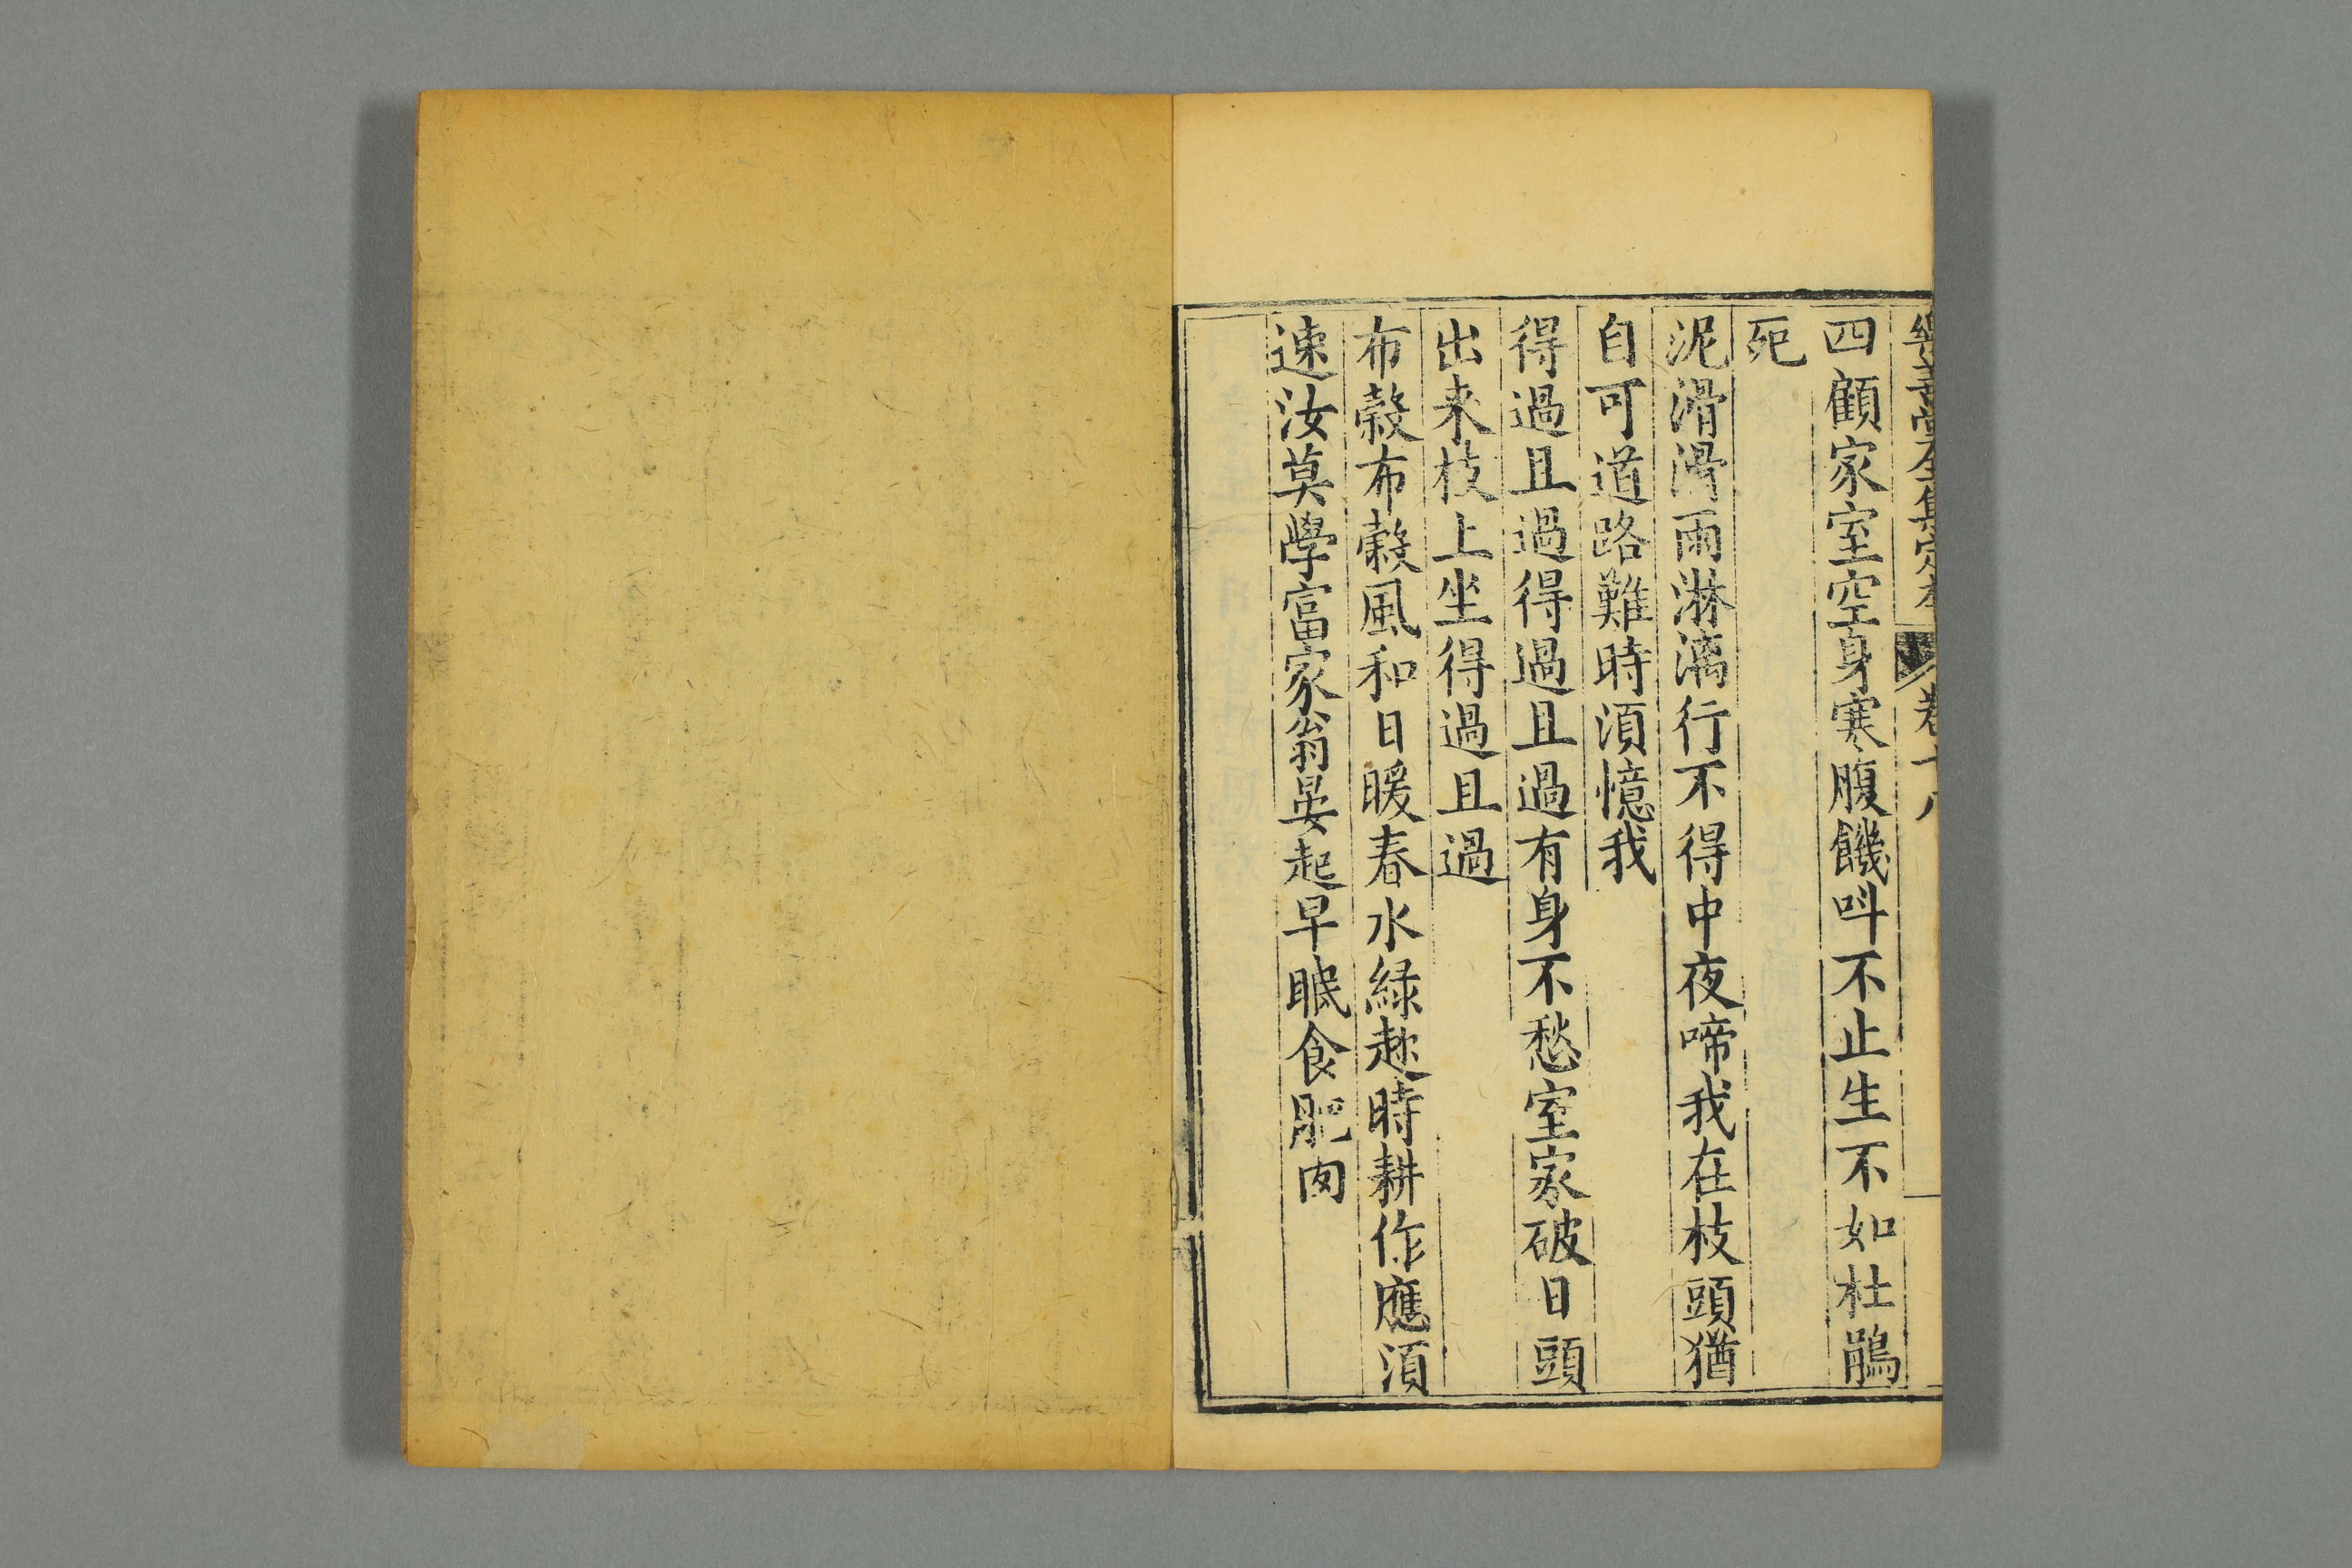 樂善堂全集定本 卷十八
四顧家室空身寒腹饑呌不止生不如杜鵑
死
泥滑滑雨淋漓行不得中夜啼我在枝頭猶
自可道路難時湏憶我
得過且過得過且過有身不愁室家破日頭
出来枝上坐得過且過
布穀布穀風和日暖春水綠趂時耕作應湏
速汝莫學富家翁晏起早眠食肥肉